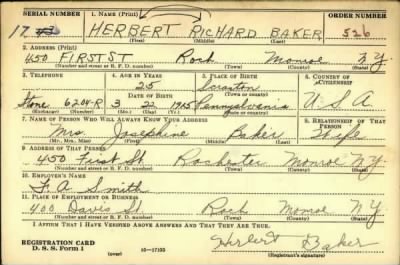 SERIAL NUMBER 1. NAME (Print) ORDER NUMBER
HERBERT RICHARD BAKER 526
(First) (Middle) (Last)
2. ADDRESS (Print)
450 FIRST ST Roch Monroe NY
(Number and street or R. F. D. number) (Town) (County) (State)
3. TELEPHONE 4. AGE IN YEARS 5. PLACE OF BIRTH 6. COUNTRY OF CITIZENSHIP
25 Scranton
DATE OF BIRTH (Town or county)
Stone 6204-R 3 22 1915 Pennsylvania U.S.A
(Exchange) (Number) (Mo.) (Day) (Yr.) (State or country)
7. NAME OF PERSON WHO WILL ALWAYS KNOW YOUR ADDRESS 8. RELATIONSHIP OF THAT PERSON
Mrs. Josephine Baker Wife
(Mr., Mrs., Miss) (First) (Middle) (Last)
9. ADDRESS OF THAT PERSON
450 First St. Rochester Monroe N.Y.
(Number and street or R. F. D. number) (Town) (County) (State)
10. EMPLOYER'S NAME
F. A. Smith
11. PLACE OF EMPLOYMENT OR BUSINESS
400 Davis St. Roch Monroe NY
(Number and street or R. F. D. number) (Town) (County) (State)
I AFFIRM THAT I HAVE VERIFIED ABOVE ANSWERS AND THAT THEY ARE TRUE.
REGISTRATION CARD
D. S. S. Form 1 (over) 16—17105 Herbert Baker
(Registrant's signature)